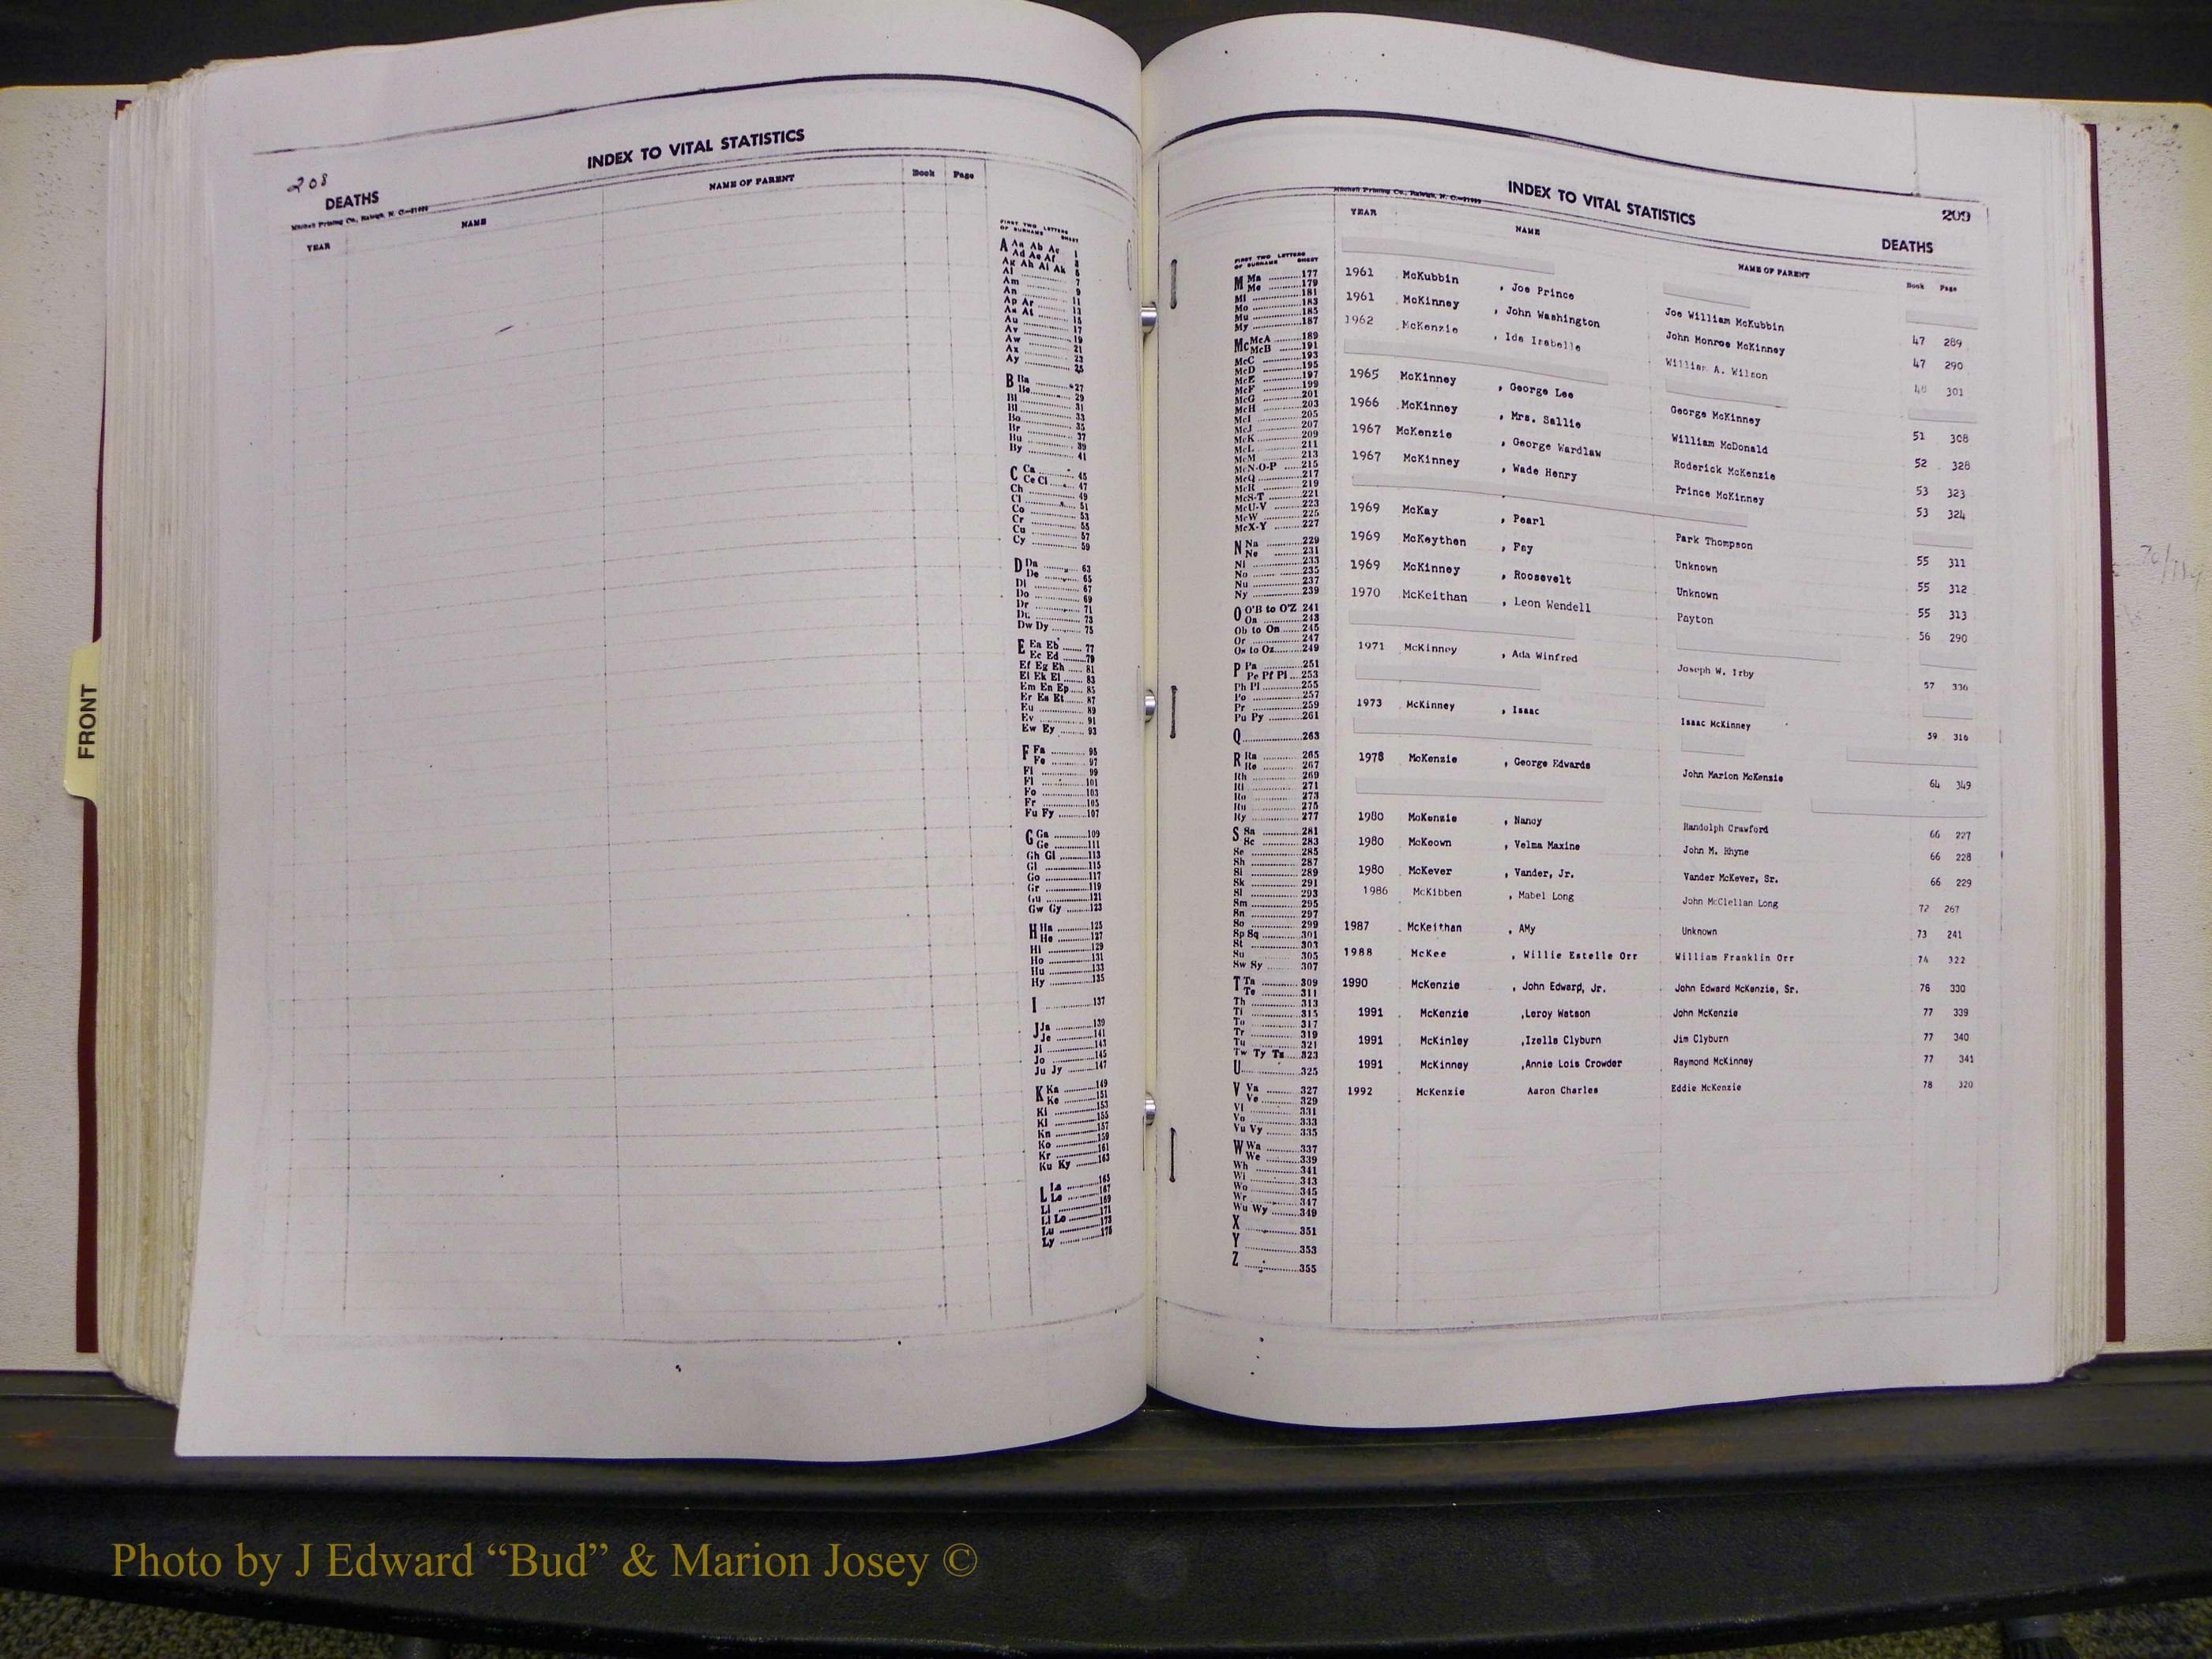 208
INDEX TO VITAL STATISTICS
DEATHS
Mitchell Printing Co., Raleigh, N. C.
YEAR NAME NAME OF PARENT Book Page
FIRST TWO LETTERS
OF SURNAME SHEET
A Aa Ab Ac 1
Ad Ae Af 3
Ag Ah Ai Ak 5
Al 7
Am 9
An 11
Ap Ar 13
As At 15
Au 17
Av 19
Aw 21
Ax 23
Ay 25
B Ba 27
Be 29
Bi 31
Bl 33
Bo 35
Br 37
Bu 39
By 41
C Ca 45
Ce Ci 47
Ch 49
Cl 51
Co 53
Cr 55
Cu 57
Cy 59
D Da 63
De 65
Di 67
Do 69
Dr 71
Du 73
Dw Dy 75
E Ea Eb 77
Ec Ed 79
Ef Eg Eh 81
Ei Ek El 83
Em En Ep 85
Er Es Et 87
Eu 89
Ev 91
Ew Ey 93
F Fa 95
Fe 97
Fi 99
Fl 101
Fo 103
Fr 105
Fu Fy 107
G Ga 109
Ge 111
Gh Gi 113
Gl 115
Go 117
Gr 119
Gu 121
Gw Gy 123
H Ha 125
He 127
Hi 129
Ho 131
Hu 133
Hy 135
I 137
J Ja 139
Je 141
Ji 143
Jo 145
Ju Jy 147
K Ka 149
Ke 151
Ki 153
Kl 155
Kn 157
Ko 159
Kr 161
Ku Ky 163
L La 165
Le 167
Li 169
Ll Lo 171
Lu 173
Ly 175
FRONT
Mitchell Printing Co., Raleigh, N. C.
INDEX TO VITAL STATISTICS
209
DEATHS
YEAR NAME NAME OF PARENT Book Page
FIRST TWO LETTERS
OF SURNAME SHEET
M Ma 177
Me 179
Mi 181
Mo 183
Mu 185
My 187
Mc McA 189
McB 191
McC 193
McD 195
McE 197
McF 199
McG 201
McH 203
McI 205
McJ 207
McK 209
McL 211
McM 213
McN-O-P 215
McQ 217
McR 219
McS-T 221
McU-V 223
McW 225
McX-Y 227
N Na 229
Ne 231
Ni 233
No 235
Nu 237
Ny 239
O O'B to O'Z 241
Oa 243
Ob to On 245
Or 247
Os to Oz 249
P Pa 251
Pe Pf Pi 253
Ph Pl 255
Po 257
Pr 259
Pu Py 261
Q 263
R Ra 265
Re 267
Rh 269
Ri 271
Ro 273
Ru 275
Ry 277
S Sa 281
Sc 283
Se 285
Sh 287
Si 289
Sk 291
Sl 293
Sm 295
Sn 297
So 299
Sp Sq 301
St 303
Su 305
Sw Sy 307
T Ta 309
Te 311
Th 313
Ti 315
To 317
Tr 319
Tu 321
Tw Ty Tz 323
U 325
V Va 327
Ve 329
Vi 331
Vo 333
Vu Vy 335
W Wa 337
We 339
Wh 341
Wi 343
Wo 345
Wr 347
Wu Wy 349
X 351
Y 353
Z 355
1961 McKubbin , Joe Prince Joe William McKubbin 47 289
1961 McKinney , John Washington John Monroe McKinney 47 290
1962 McKenzie , Ida Isabelle William A. Wilson 48 301
1965 McKinney , George Lee George McKinney 51 308
1966 McKinney , Mrs. Sallie William McDonald 52 328
1967 McKenzie , George Wardlaw Roderick McKenzie 53 323
1967 McKinney , Wade Henry Prince McKinney 53 324
1969 McKay , Pearl Park Thompson 55 311
1969 McKeythen , Fay Unknown 55 312
1969 McKinney , Roosevelt Unknown 55 313
1970 McKeithan , Leon Wendell Payton 56 290
1971 McKinney , Ada Winfred Joseph W. Irby 57 336
1973 McKinney , Isaac Isaac McKinney 59 316
1978 McKenzie , George Edwards John Marion McKenzie 64 349
1980 McKenzie , Nancy Randolph Crawford 66 227
1980 McKeown , Velma Maxine John M. Rhyne 66 228
1980 McKever , Vander, Jr. Vander McKever, Sr. 66 229
1986 McKibben , Mabel Long John McClellan Long 72 267
1987 McKeithan , AMy Unknown 73 241
1988 McKee , Willie Estelle Orr William Franklin Orr 74 322
1990 McKenzie , John Edward, Jr. John Edward McKenzie, Sr. 76 330
1991 McKenzie ,Leroy Watson John McKenzie 77 339
1991 McKinley ,Izella Clyburn Jim Clyburn 77 340
1991 McKinney ,Annie Lois Crowder Raymond McKinney 77 341
1992 McKenzie Aaron Charles Eddie McKenzie 78 320
Photo by J Edward “Bud” & Marion Josey ©